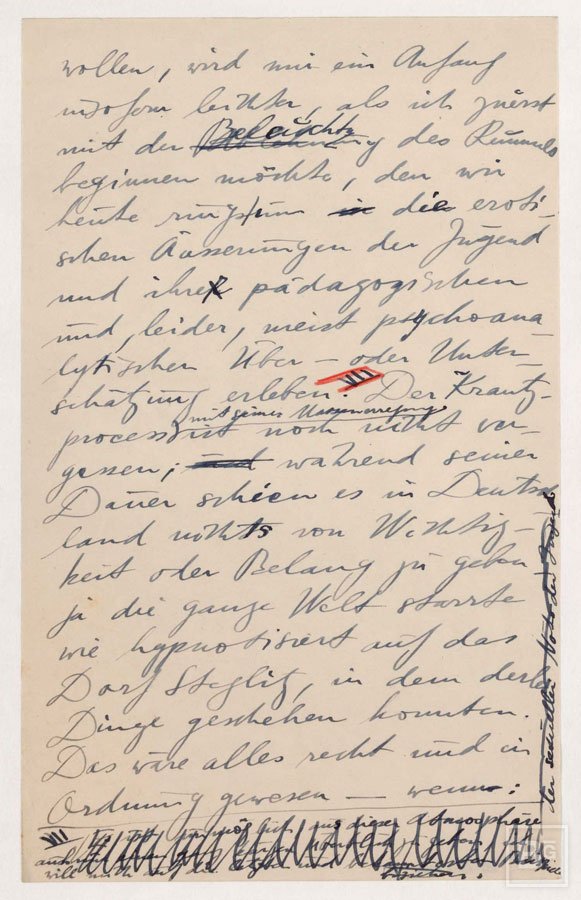 wollen, wird mir ein Anfang
insofern leichter, als ich zuerst
mit der Beleuchtg des Rummels
beginnen möchte, den wir
heute rings um die eroti-
schen Äusserungen der Jugend
und ihrer pädagogischen
und, leider, meist psychoana
lytischen Über- oder Unter-
VII
schätzung erleben. Der Krantz-
mit seiner Massenerregung
process ist noch nicht ver-
gessen; während seiner
Dauer schien es in Deutsch
land nichts von Wichtig-
keit oder Belang zu geben
ja die ganze Welt starrte
wie hypnotisiert auf das
Dorf Steglitz, in dem derlei
Dinge geschehen konnten.
Das wäre alles recht und in
Ordnung gewesen — wenn:
VII
dieser Atmosphäre
will mich auf die
der sexuellen Nöte der Jugend